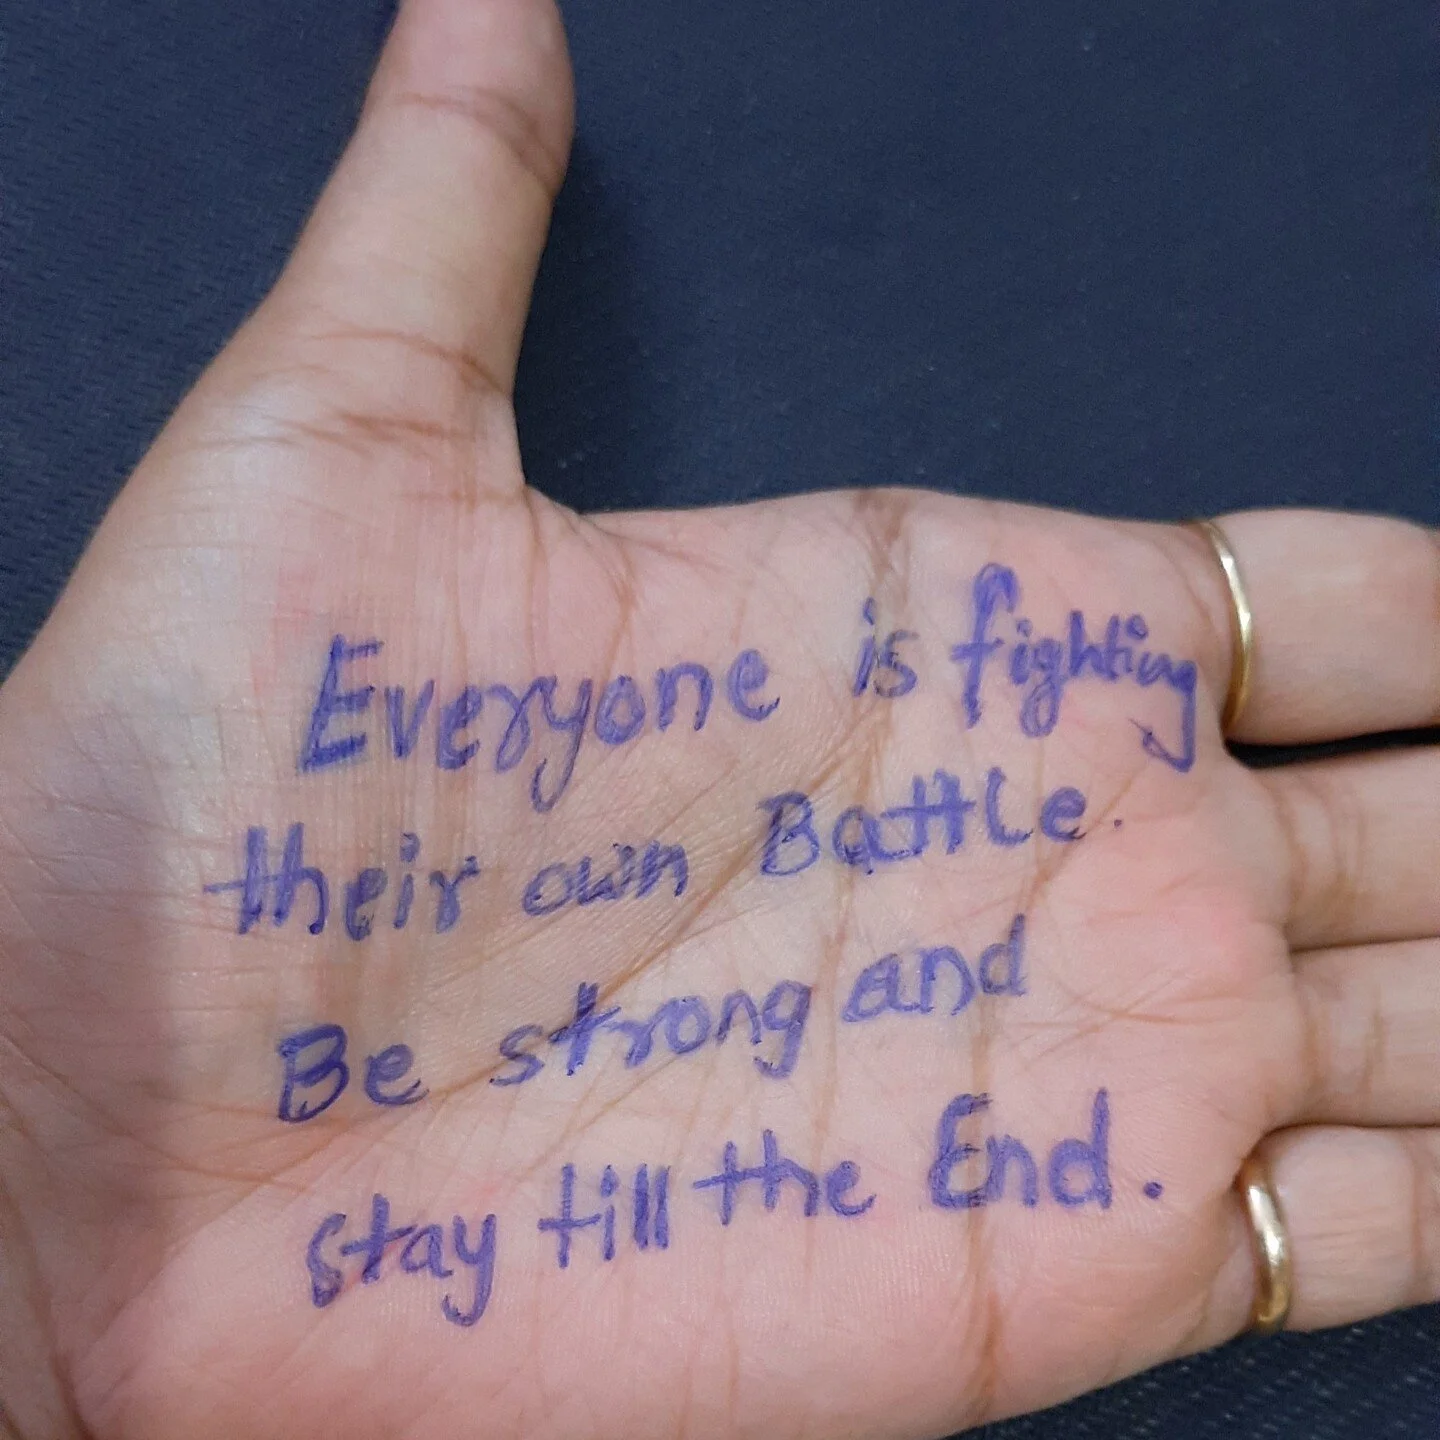 Everyone is fighting
their own Battle.
Be strong and
stay till the End.